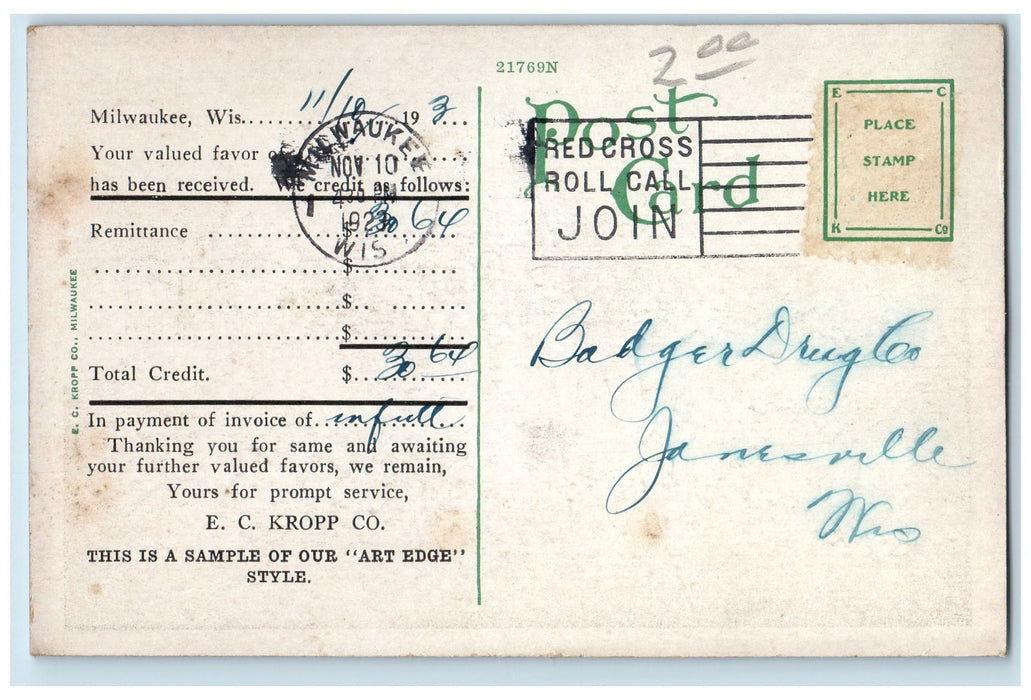 21769N
2 00
Post
Card
Milwaukee, Wis. 11/10 1923
Your valued favor
has been received. We credit as follows:
Remittance $ 30 64
$
$
$
Total Credit. $ 30 64
In payment of invoice of in full
Thanking you for same and awaiting
your further valued favors, we remain,
Yours for prompt service,
E. C. KROPP CO.
THIS IS A SAMPLE OF OUR "ART EDGE"
STYLE.
E. C. KROPP CO., MILWAUKEE
MILWAUKEE
NOV 10
4 PM
1923
WIS
1
RED CROSS
ROLL CALL
JOIN
E C
PLACE
STAMP
HERE
K Co
Badger Drug Co
Janesville
Wis